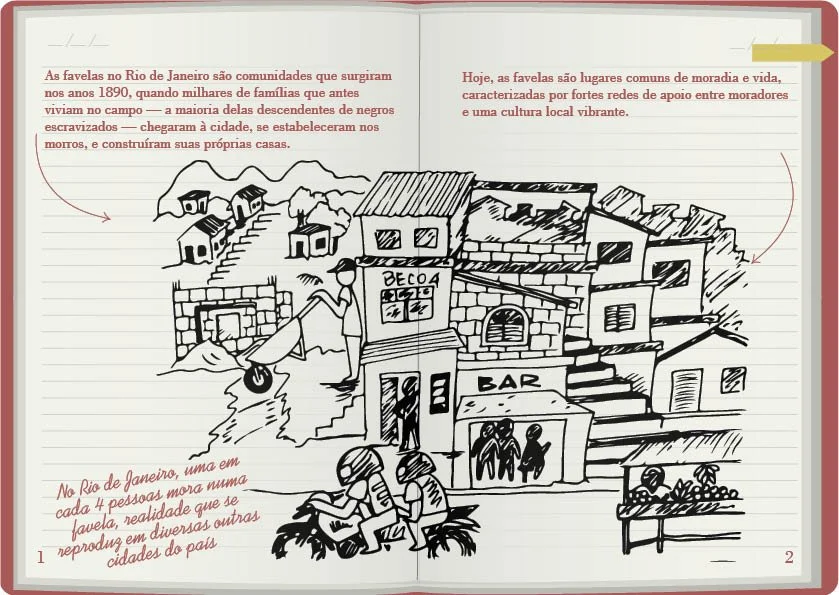 As favelas no Rio de Janeiro são comunidades que surgiram
nos anos 1890, quando milhares de famílias que antes
viviam no campo — a maioria delas descendentes de negros
escravizados — chegaram à cidade, se estabeleceram nos
morros, e construíram suas próprias casas.
Hoje, as favelas são lugares comuns de moradia e vida,
caracterizadas por fortes redes de apoio entre moradores
e uma cultura local vibrante.
BECO 4
BAR
No Rio de Janeiro, uma em
cada 4 pessoas mora numa
favela, realidade que se
reproduz em diversas outras
cidades do país
1
2